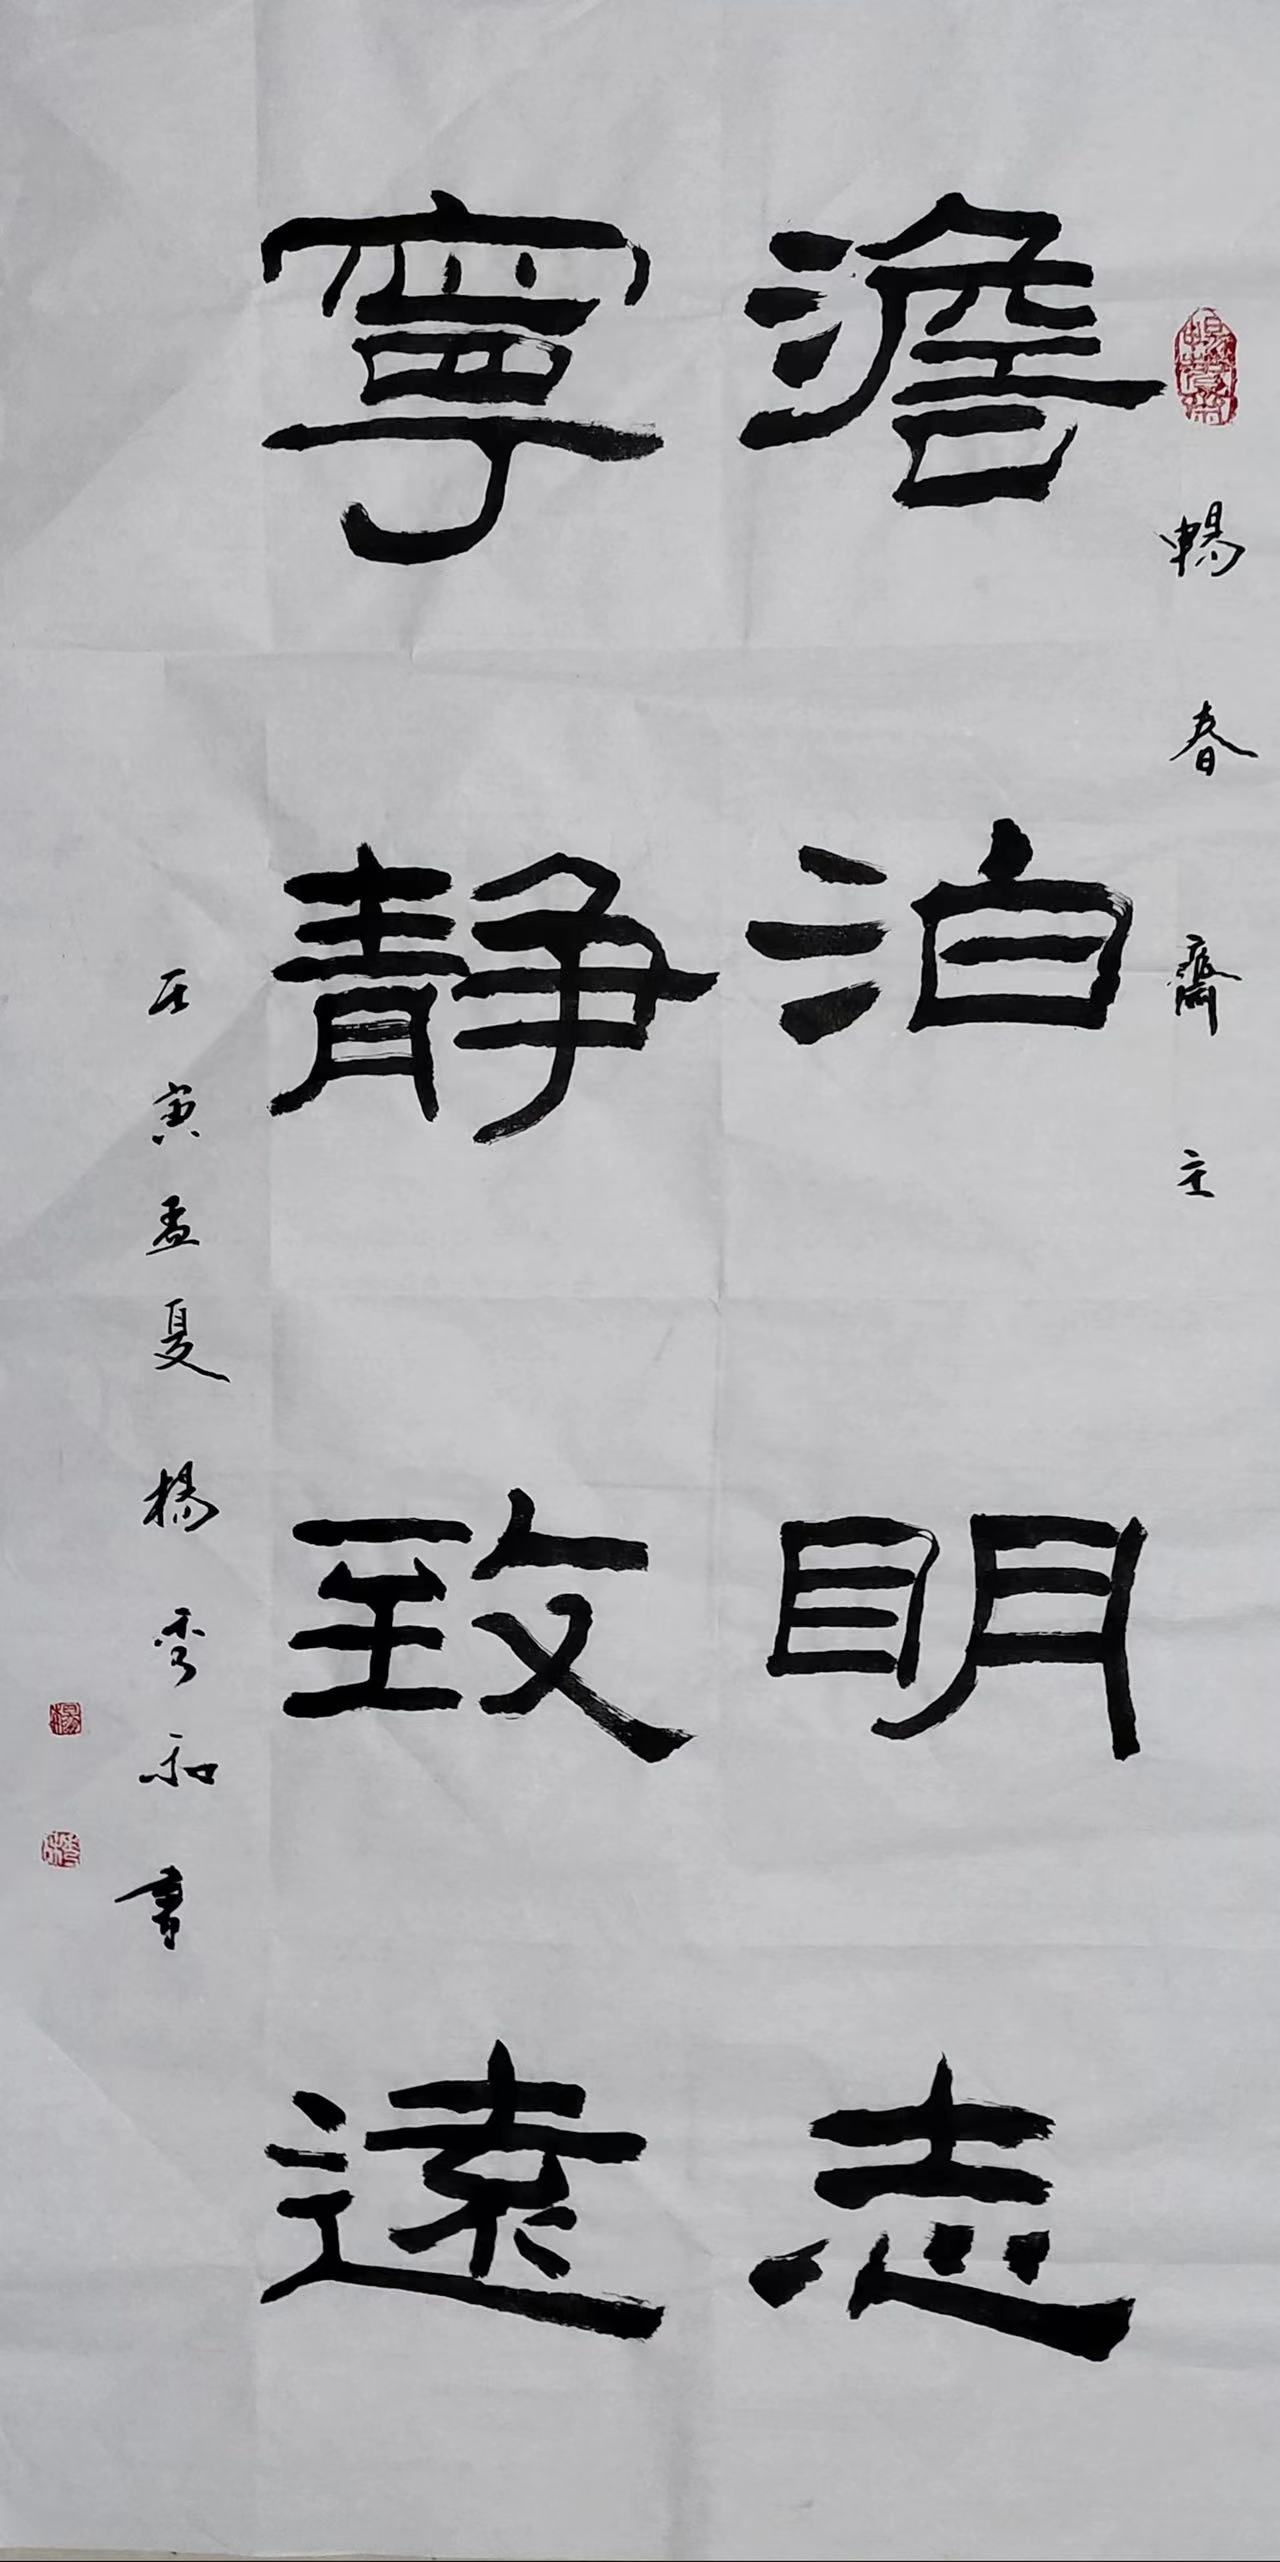 暢春齋主
澹泊明志
寧靜致遠
壬寅孟夏楊秀和書